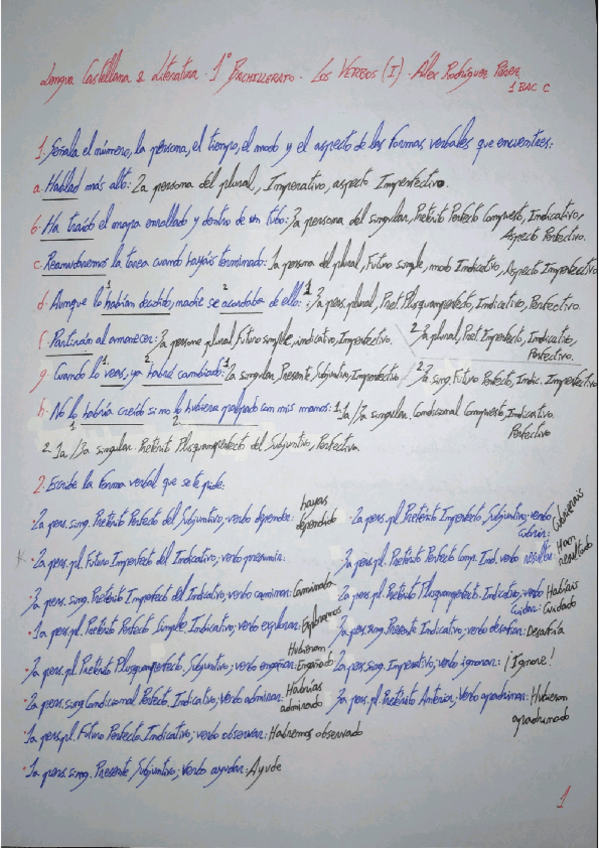 Lengua Castellana & Literatura · 1º Bachillerato · Los Verbos (I) · Álex Rodríguez Pérez
1 BAC C
1. Señala el número, la persona, el tiempo, el modo y el aspecto de las formas verbales que encuentres:
a. Hablad más alto: 2a persona del plural, Imperativo, aspecto Imperfectivo.
b. Ha traído el mapa enrollado y dentro de un tubo: 3a persona del singular, Pretérito Perfecto Compuesto, Indicativo,
Aspecto Perfectivo.
c. Reanudaremos la tarea cuando hayáis terminado: 1a persona del plural, Futuro simple, modo Indicativo, Aspecto Imperfectivo
d. Aunque lo habían decidido, nadie se acordaba de ello: 1. 3a pers. plural, Pret Pluscuamperfecto, Indicativo, Perfectivo.
f. Partirán al amanecer: 3a persona plural, Futuro simple, indicativo, Imperfectivo. 2. 3a plural, Pret Imperfecto, Indicativo,
Perfectivo.
g. Cuando lo veas, ya habré cambiado: 1. 2a singular, Presente, Subjuntivo, Imperfectivo 2. 1a sing. Futuro Perfecto, Indic. Imperfectivo
h. No lo habría creído si no lo hubiera palpado con mis manos: 1. 1a/3a singular. Condicional Compuesto, Indicativo.
Perfectivo
2. 1a/3a singular. Pretérito Pluscuamperfecto del Subjuntivo, Perfectivo.
2. Escribe la forma verbal que se te pide:
· 2a pers. sing. Pretérito Perfecto del Subjuntivo, verbo depender: hayas dependido
· 2a pers. pl. Pretérito Imperfecto, Subjuntivo; verbo cubrir: Cubrierais
· 2a pers. pl. Futuro Imperfecto del Indicativo; verbo presumir:
3a pers. pl. Pretérito Perfecto Comp. Ind. verbo resultar: Han resultado
· 3a pers. sing. Pretérito Imperfecto del Indicativo, verbo caminar: Caminaba
2a pers. pl. Pretérito Pluscuamperfecto. Indicativo, verbo cuidar: Habíais cuidado
· 1a pers. pl. Pretérito Perfecto Simple Indicativo; verbo explorar: Exploramos
3a pers. sing. Presente Indicativo; verbo desafiar: Desafía
· 3a pers. pl. Pretérito Pluscuamperfecto, Subjuntivo; verbo engañar: Hubieran Engañado
2a pers. sing. Imperativo; verbo ignorar: ¡Ignore!
· 2a pers. sing Condicional Perfecto, Indicativo; verbo admirar: Habrías admirado
3a pers. pl. Pretérito Anterior; verbo apadrinar: Hubieron apadrinado
· 1a pers. pl. Futuro Perfecto Indicativo; verbo observar: Habremos observado
· 1a pers. sing. Presente, Subjuntivo; Verbo ayudar: Ayude
1